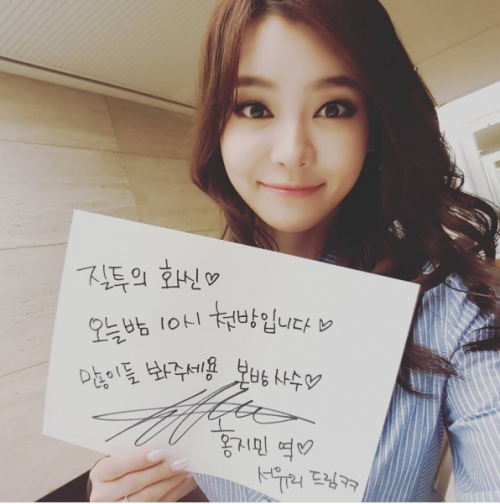 질투의 화신♡
오늘밤 10시 첫방입니다♡
많이들 봐주세용 본방사수♡
홍지민 역♡
서유리 드림ㅋㅋ